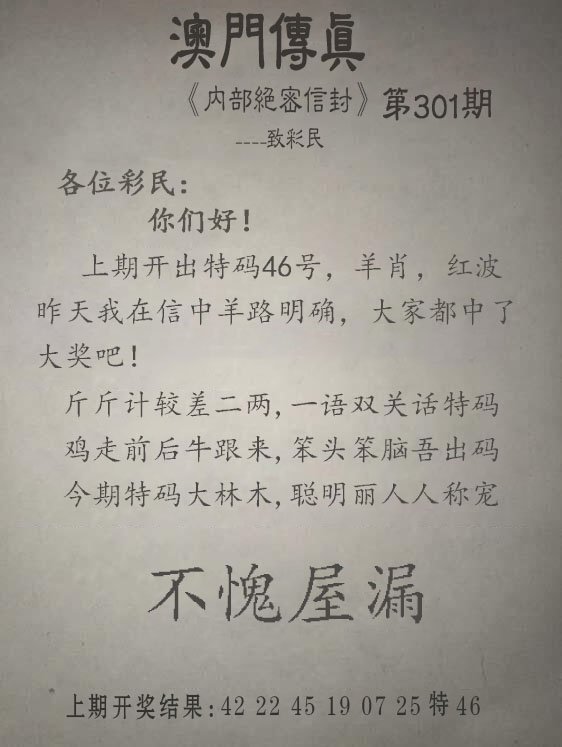 澳門傳眞
《内部絕密信封》第301期
----致彩民
各位彩民：
你们好！
上期开出特码46号，羊肖，红波
昨天我在信中羊路明确，大家都中了
大奖吧！
斤斤计较差二两，一语双关话特码
鸡走前后牛跟来，笨头笨脑吾出码
今期特码大林木，聪明丽人人称宠
不愧屋漏
上期开奖结果：42 22 45 19 07 25 特 46